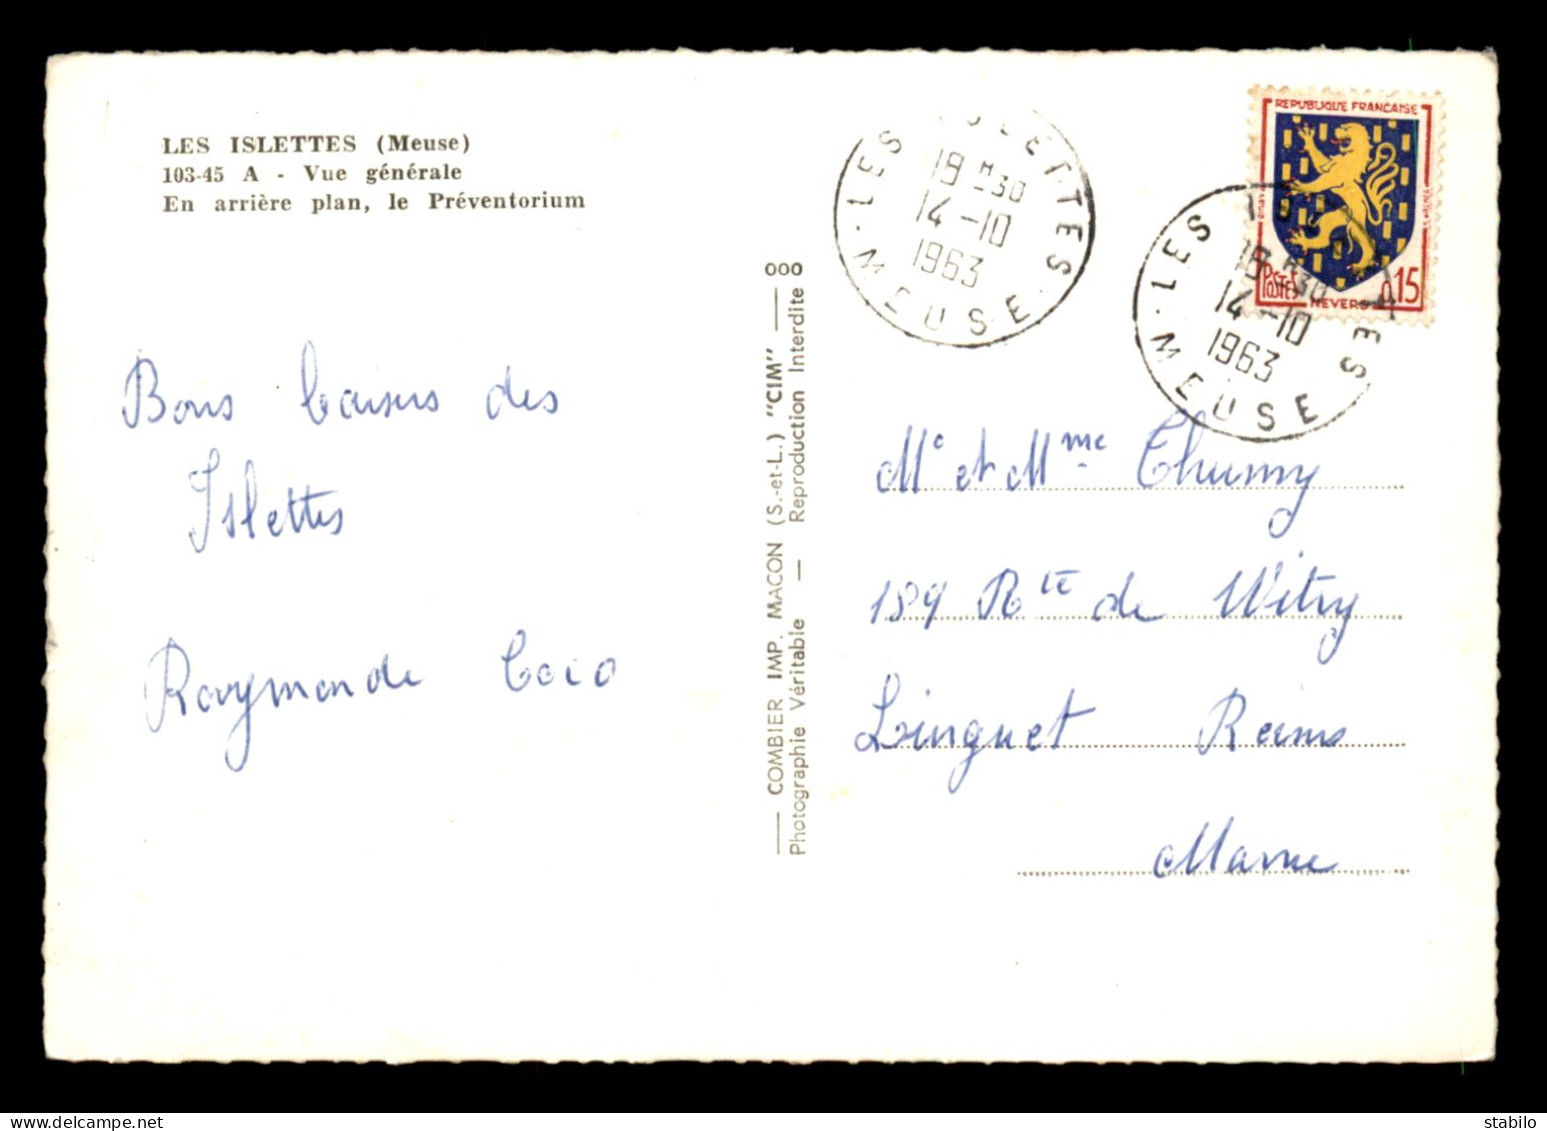 LES ISLETTES (Meuse)
103-45 A - Vue générale
En arrière plan, le Préventorium
Bons baisers des
Islettes
Raymonde Coco
COMBIER IMP. MACON (S.-et-L.) "CIM"
Photographie Véritable — Reproduction Interdite
LES ISLETTES
18 H 30
14-10
1963
MEUSE
LES ISLETTES
18 H 30
14-10
1963
MEUSE
REPUBLIQUE FRANCAISE
POSTES
NEVERS
0,15
Mr et Mme Thumy
189 Rte de Witry
Linguet Reims
Marne
stabilo